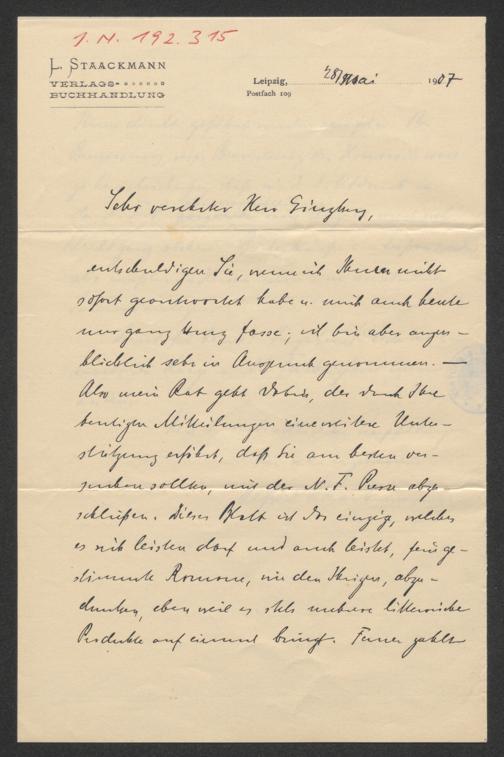 I. N. 192.315
L. STAACKMANN
VERLAGS-
BUCHHANDLUNG
Leipzig, 28 Mai 1907
Postfach 109
Sehr verehrter Herr Ginzkey,
entschuldigen Sie, wenn ich Ihnen nicht
sofort geantwortet habe u. mich auch heute
nur ganz kurz fasse; ich bin aber augen-
blicklich sehr in Anspruch genommen. —
Also mein Rat geht dahin, der durch Ihre
heutigen Mitteilungen eine weitere Unter-
stützung erfährt, daß Sie am besten ver-
suchen sollten, mit der N. F. Presse abzu-
schließen. Dieses Blatt ist das einzige, welches
es sich leisten darf und auch leistet, feinge-
stimmte Romane, wie den Ihrigen, abzu-
drucken, eben weil es stets mehrere litterarische
Produkte auf einmal bringt. Ferner zahlt